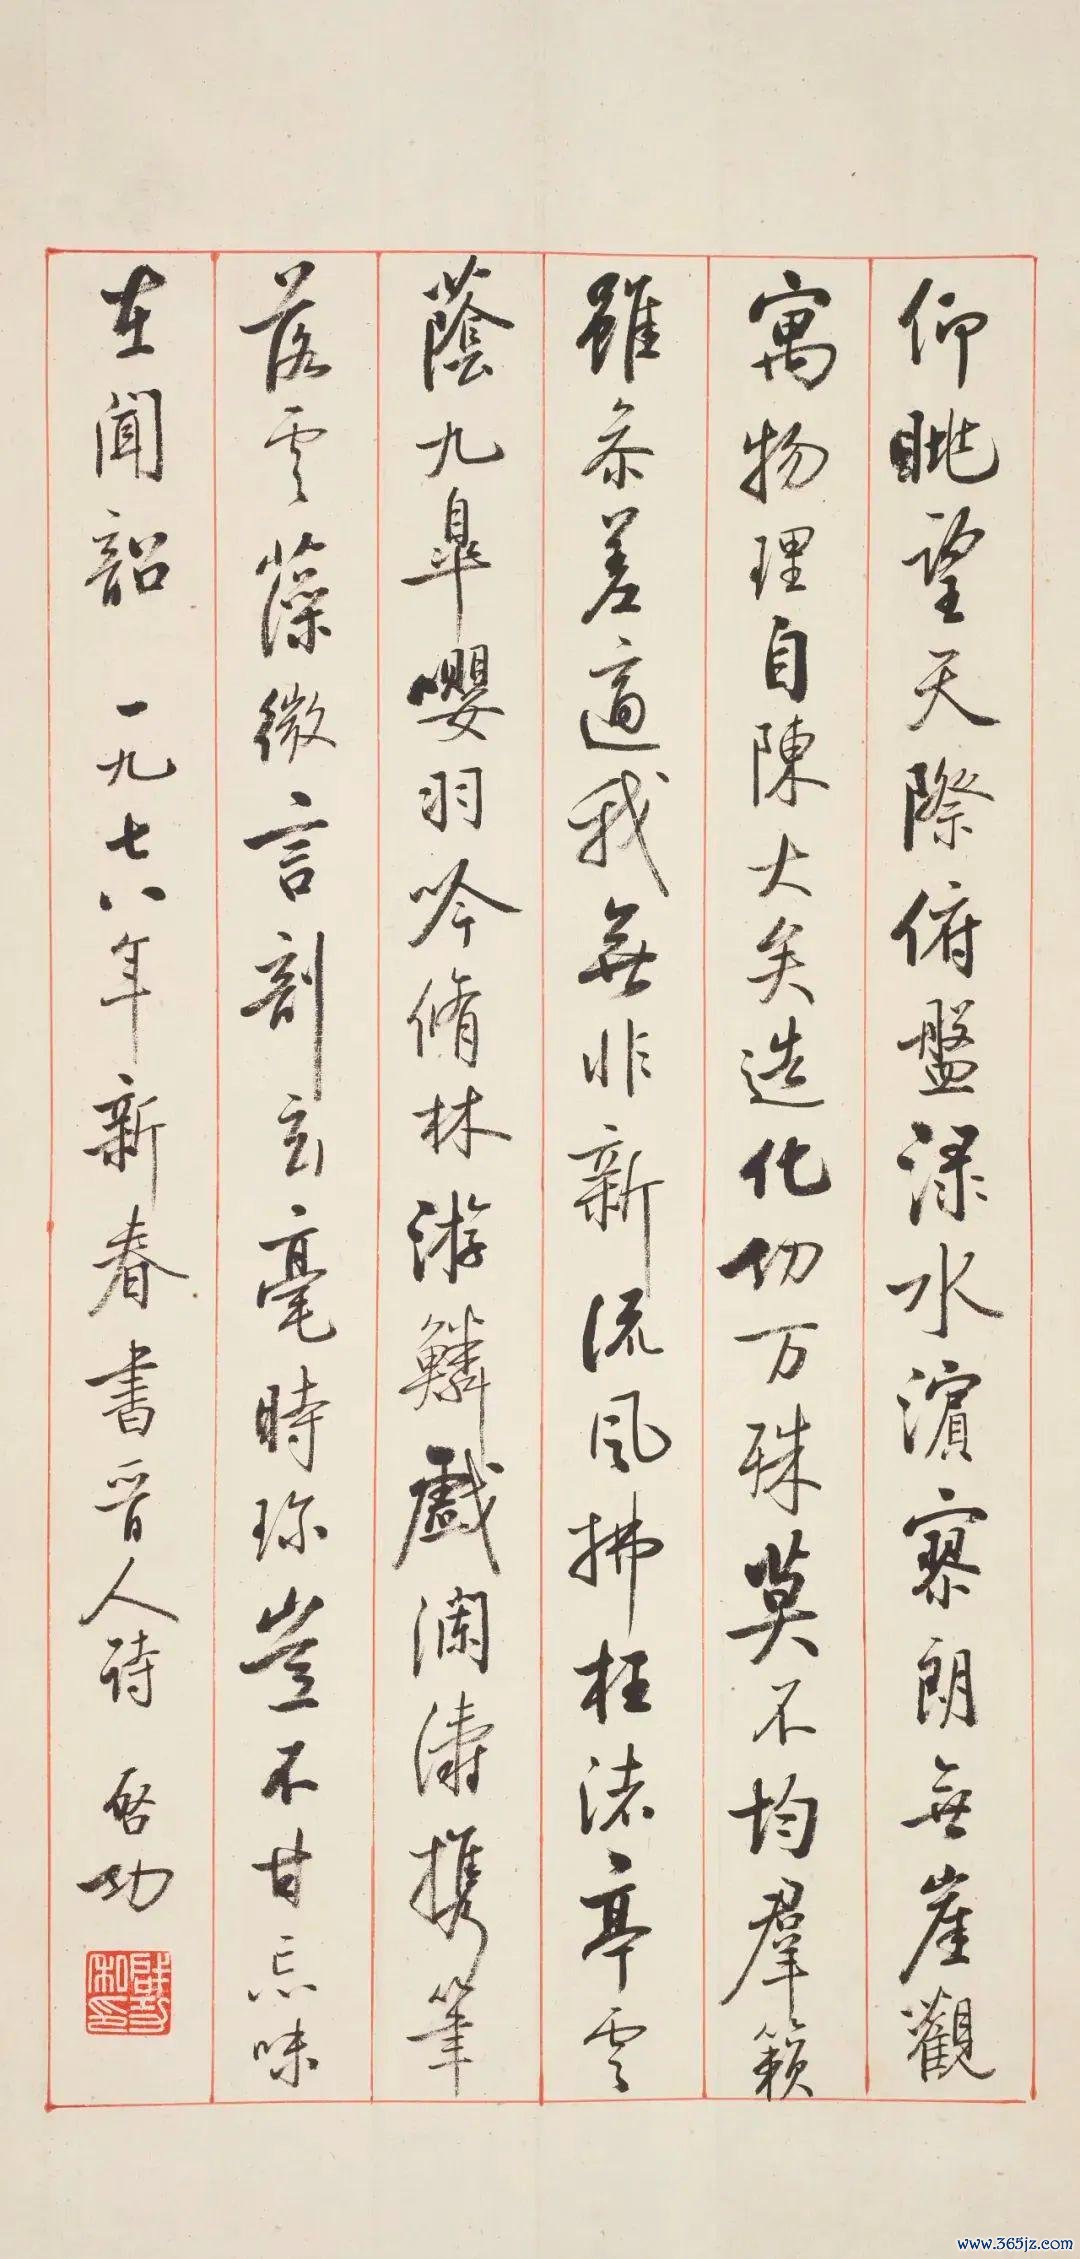 仰眺望天際俯盤淥水濵寥朗無崖觀
寓物理自陳大矣造化功万殊莫不均羣籟
雖叅差適我無非新流風拂枉渚亭雲
蔭九臯嚶羽吟脩林游鱗戲瀾濤攜筆
落雲藻微言剖玄毫時珍豈不甘忘味
在聞韶 一九七八年新春書晉人詩 啓功
www.365jz.com